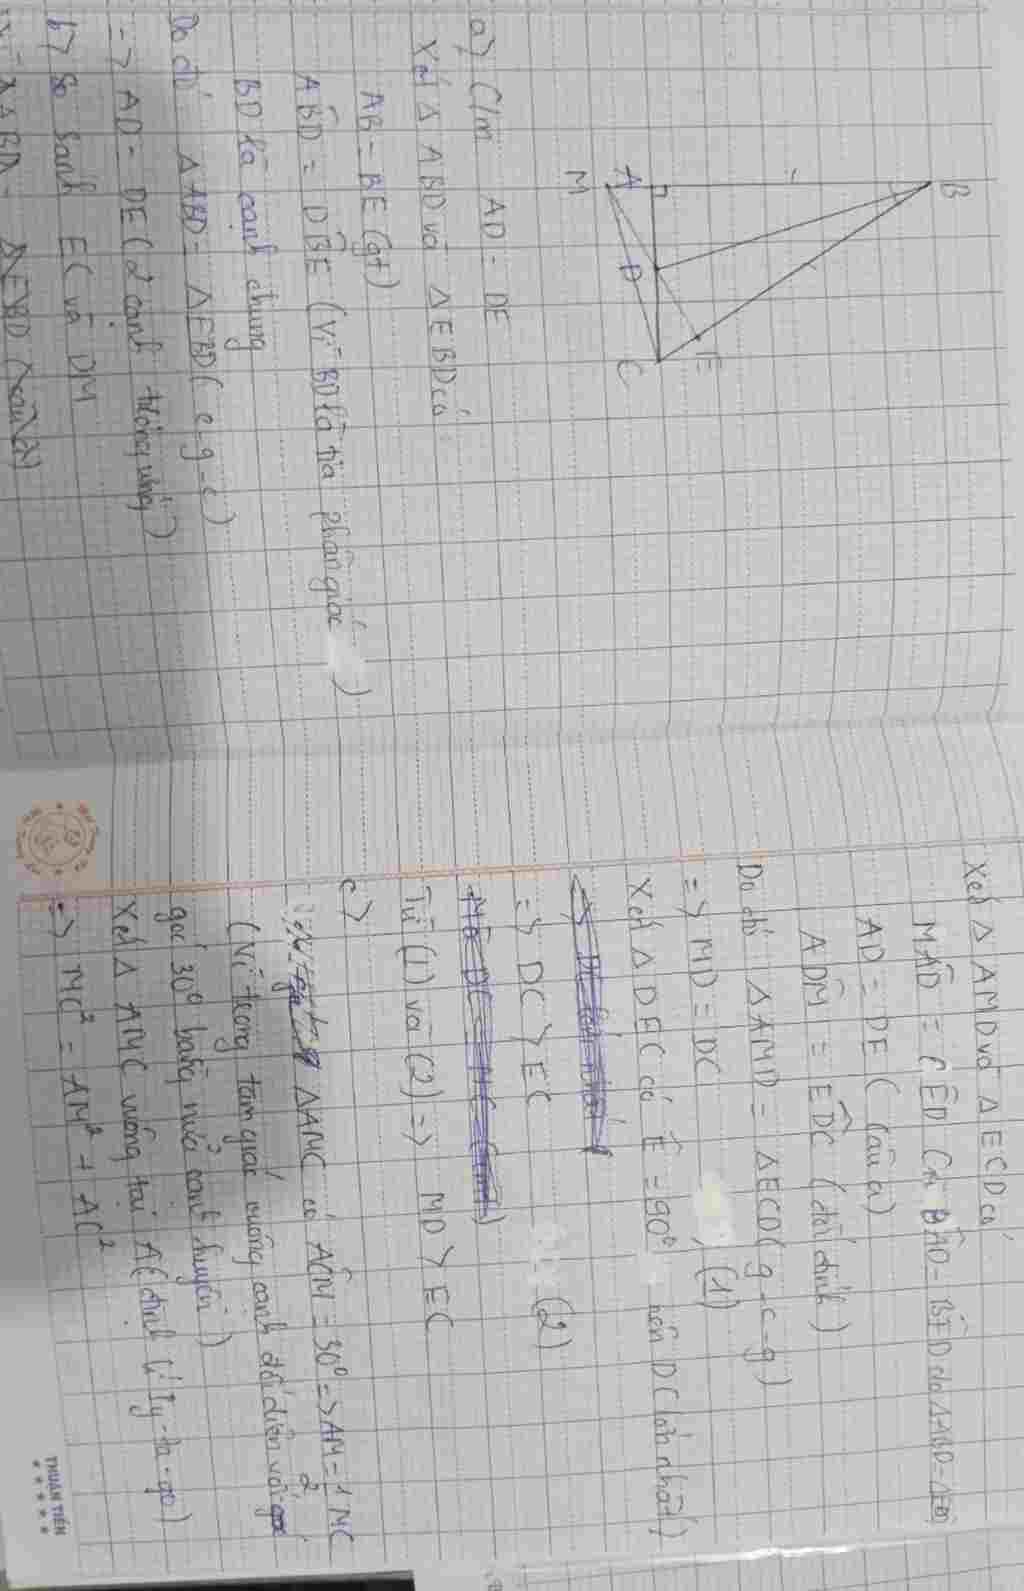 B
A
D
E
M
C
a) C/m AD = DE
Xét Δ ABD và Δ EBD có
AB = BE (gt)
AB̂D = DB̂E (Vì BD là tia phân giác )
BD là cạnh chung
Do đó ΔABD = ΔEBD (c-g-c)
=> AD = DE (2 cạnh tương ứng)
b) So sánh EC và DM
ΔEBD (câu a)
Xét Δ AMD và Δ ECD có
MÂD = CÊD BÂD = BÊD do ΔABD =
AD = DE (câu a)
AD̂M = ED̂C (đối đỉnh)
Do đó ΔAMD = ΔECD (g-c-g)
=> MD = DC (1)
Xét Δ DEC có Ê = 90° nên DC lớn nhất)
=> DC > EC (2)
Từ (1) và (2) => MD > EC
c)
ΔAMC có AĈM = 30° => AM = 1/2 MC
(Vì trong tam giác vuông cạnh đối diện với góc
góc 30° bằng nửa cạnh huyền)
Xét Δ AMC vuông tại A (định lí Py-ta-go)
=> MC² = AM² + AC²
THUẬN TIẾN